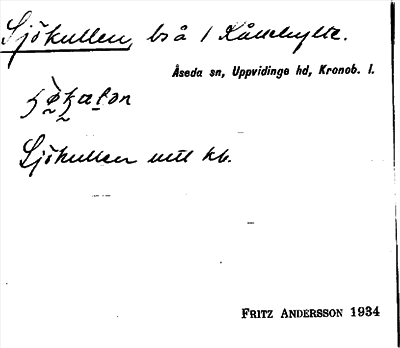 Sjökullen, bså / Kållehylte.
Åseda sn, Uppvidinge hd, Kronob. l.
Sjökullen utt kb.
FRITZ ANDERSSON 1934